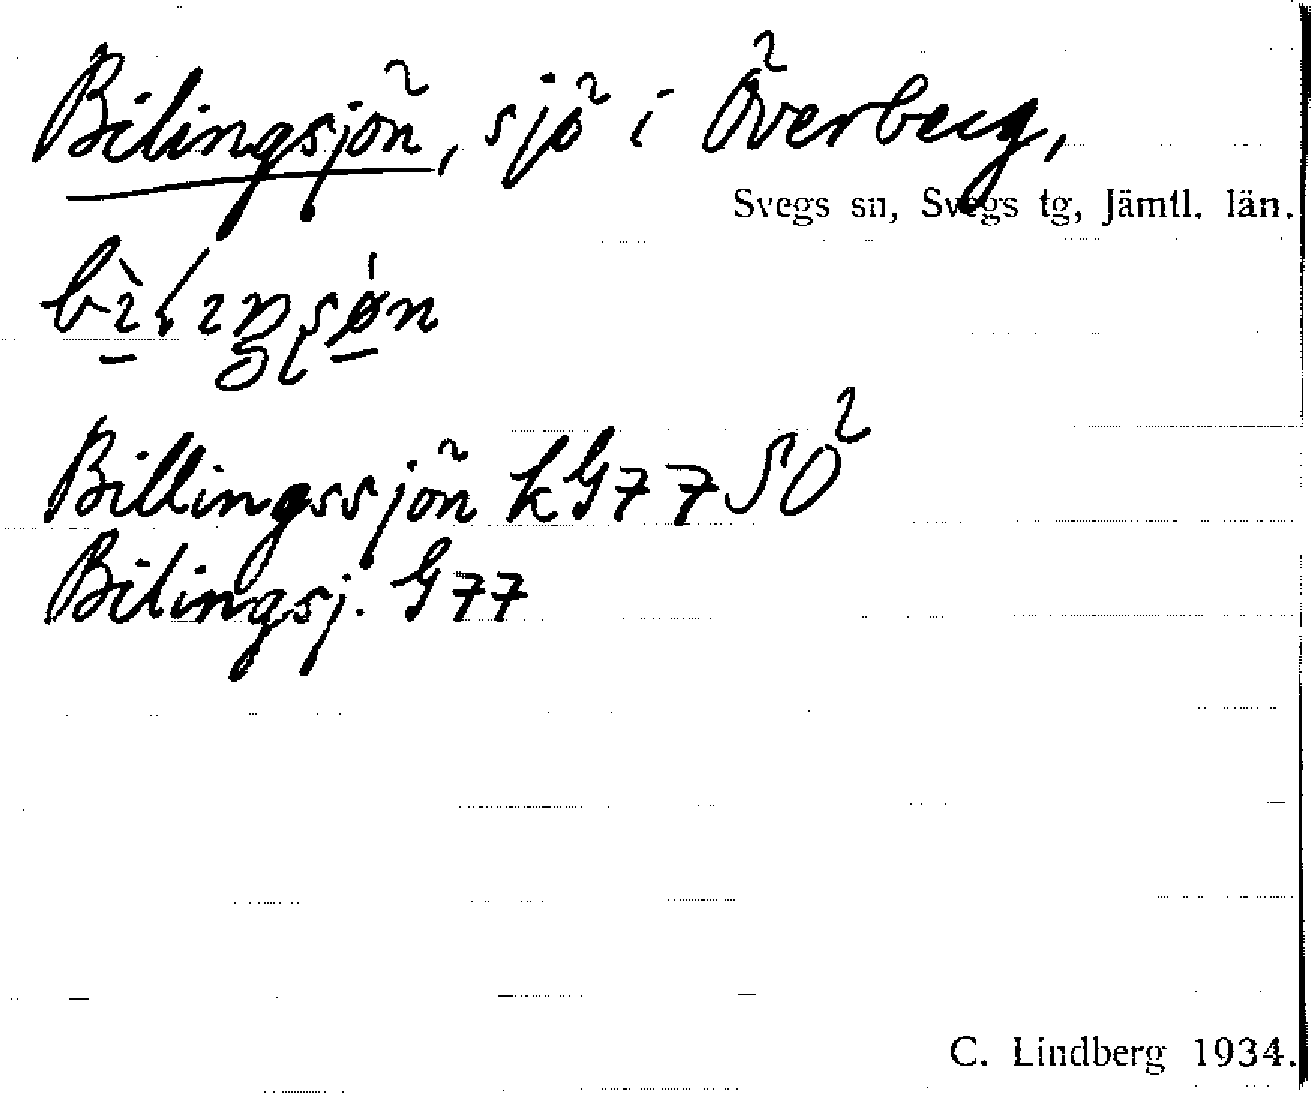 Bilingsjön, sjö i Överberg,
Svegs sn, Svegs tg, Jämtl. län.
Billingssjön kG77 SO²
Bilingsj. G77
C. Lindberg 1934.